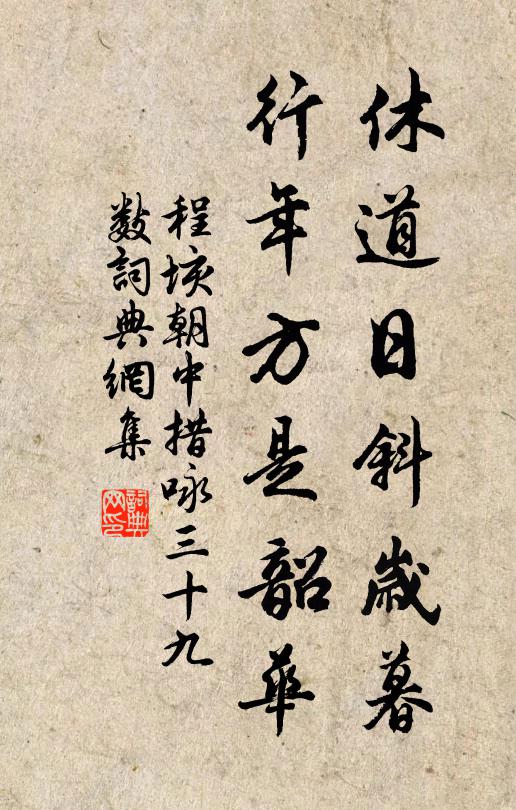 休道日斜歲暮
行年方是韶華
程垓朝中措咏三十九
數詞典網集
詞典网印